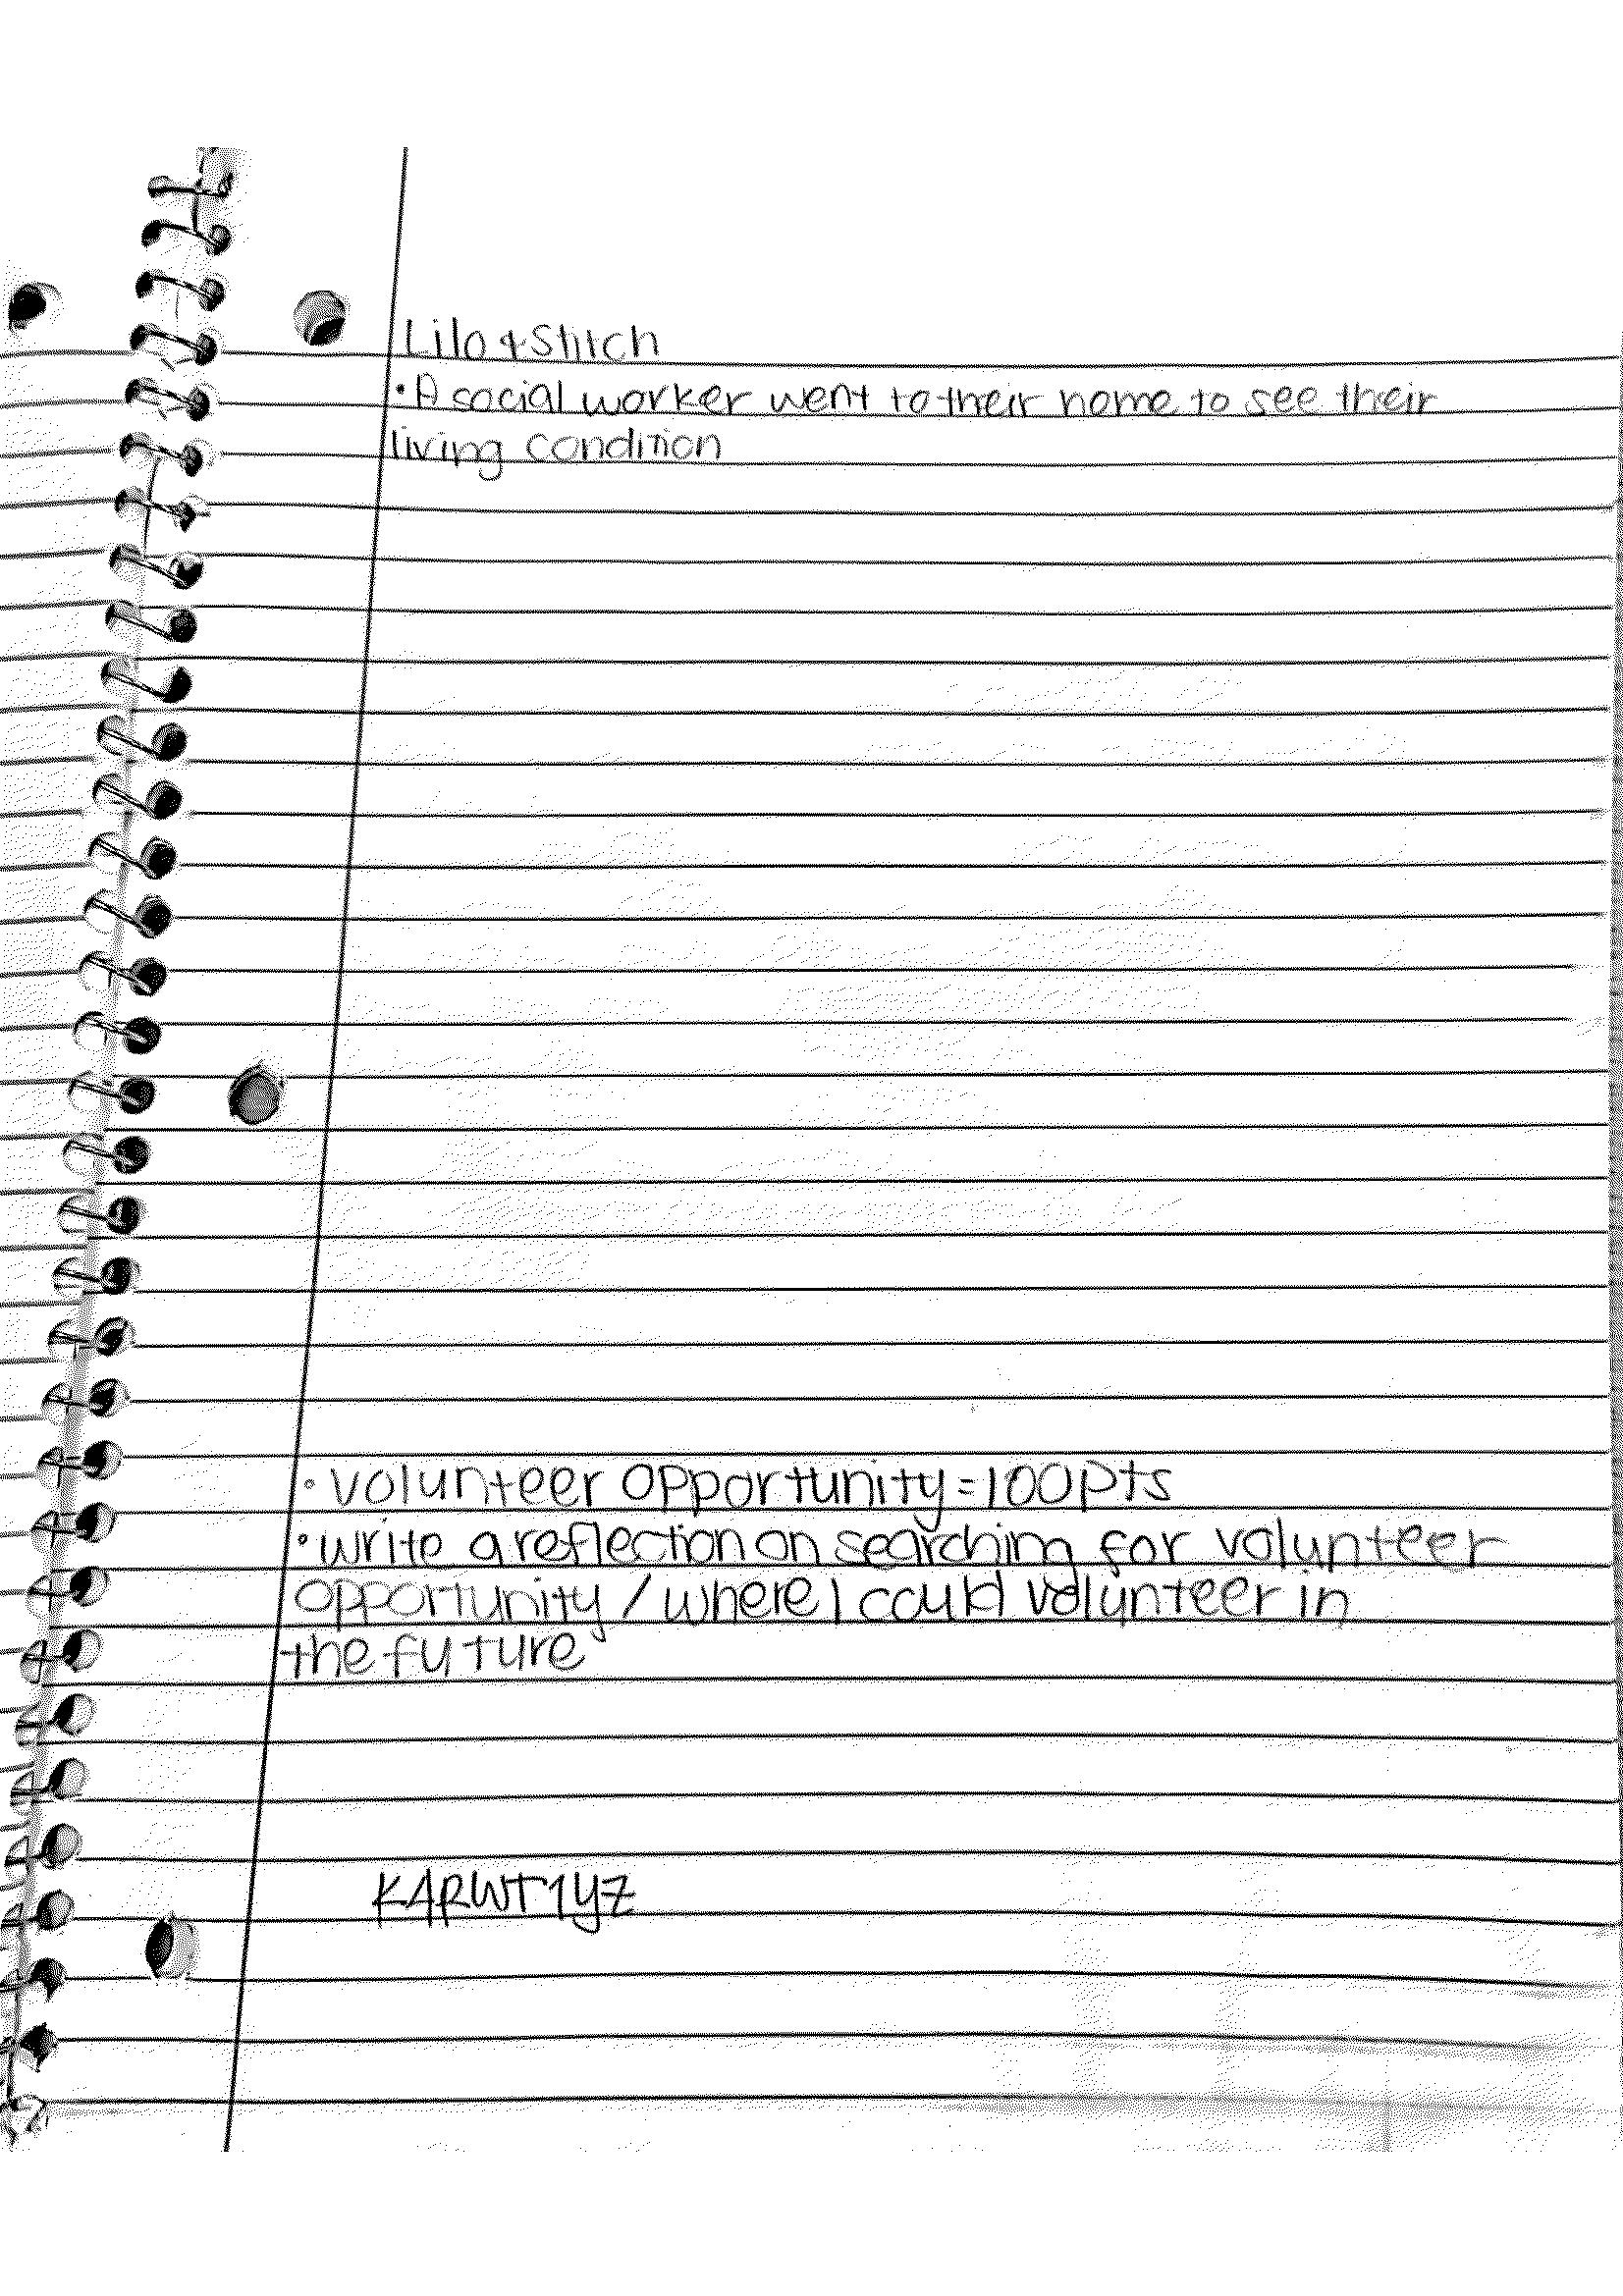 Lilo & Stitch
• A social worker went to their home to see their
living condition
• volunteer opportunity = 100pts
• write a reflection on searching for volunteer
opportunity / where I could volunteer in
the future
K4RWT1YZ